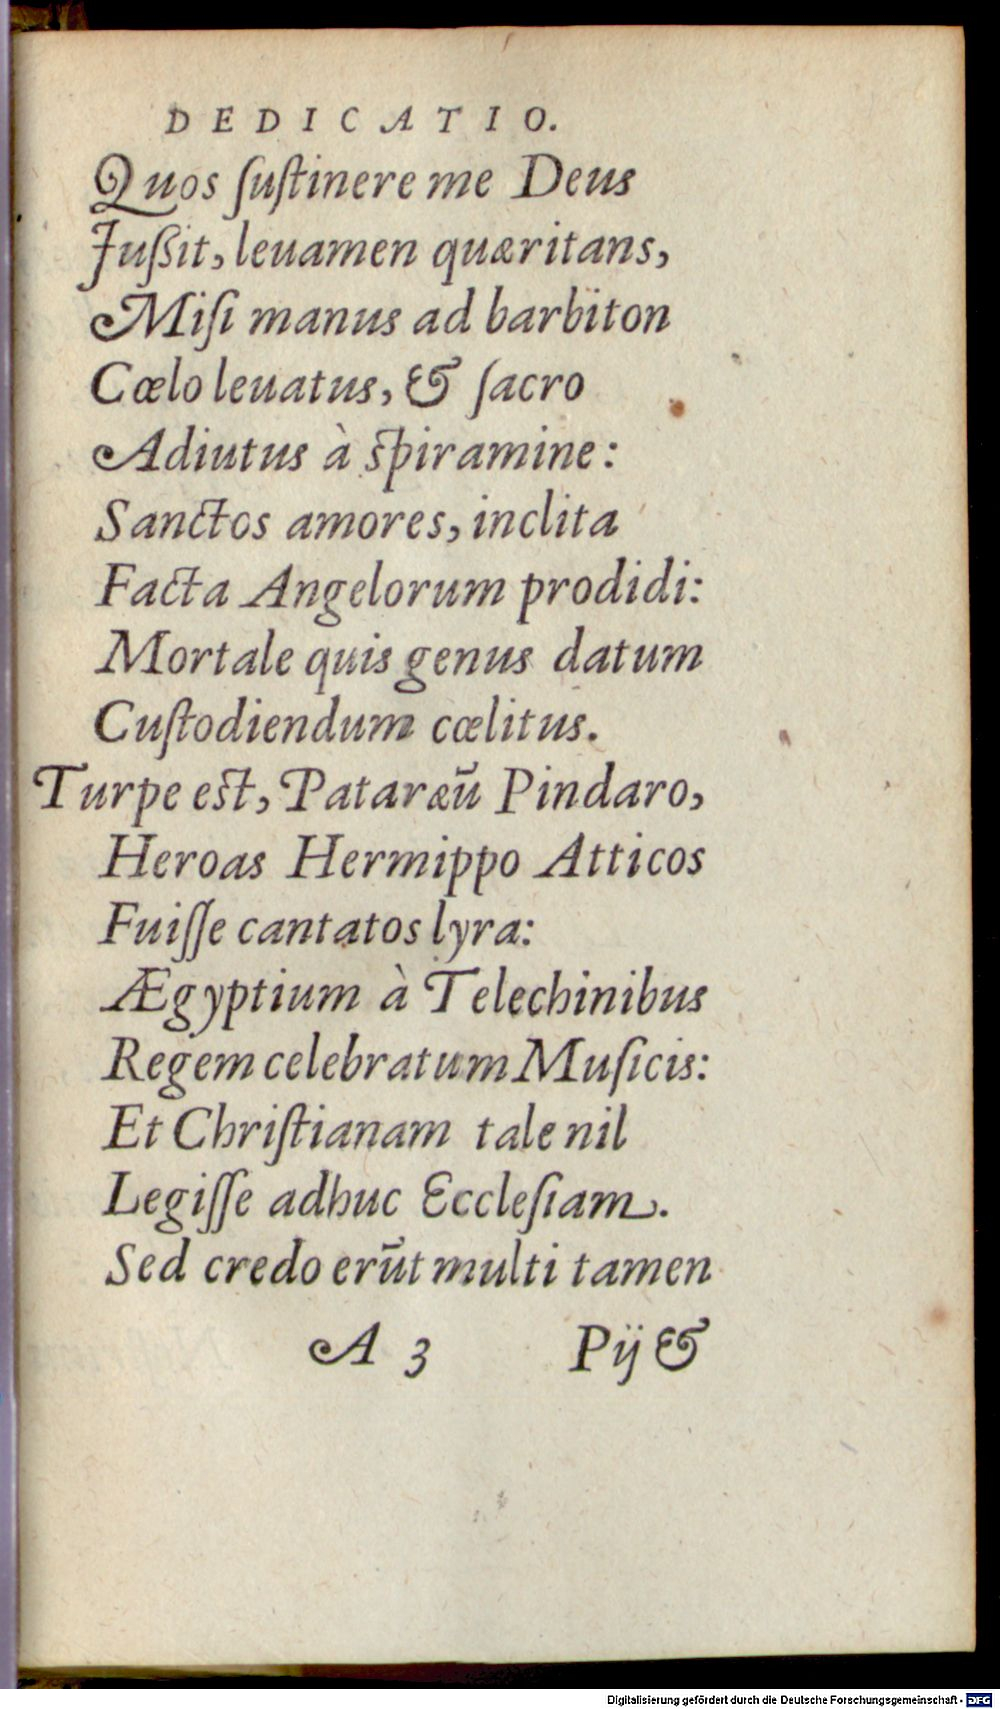 DEDICATIO.
Quos ſuſtinere me Deus
Juſsit, leuamen quæritans,
Miſi manus ad barbiton
Cœlo leuatus, & ſacro
Adiutus à ſpiramine:
Sanctos amores, inclita
Facta Angelorum prodidi:
Mortale quis genus datum
Cuſtodiendum cœlitus.
Turpe eſt, Pataræū Pindaro,
Heroas Hermippo Atticos
Fuiſſe cantatos lyra:
Ægyptium à Telechinibus
Regem celebratum Muſicis:
Et Chriſtianam tale nil
Legiſſe adhuc Eccleſiam.
Sed credo erūt multi tamen
A 3 Pij &
Digitalisierung gefördert durch die Deutsche Forschungsgemeinschaft - DFG